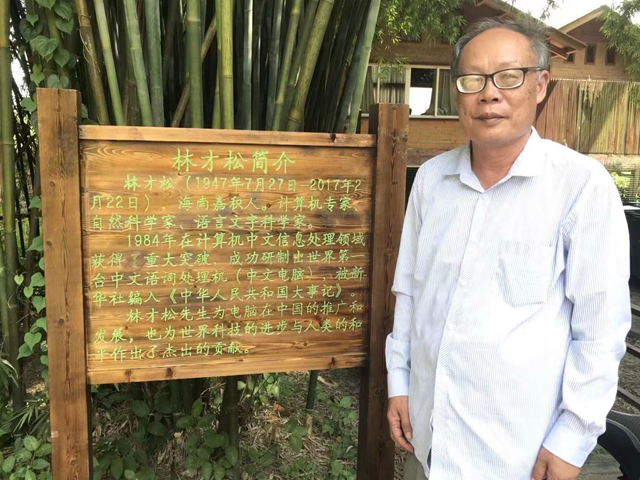 林才松简介
林才松（1947年7月27日-2017年2
月22日），海南嘉积人。计算机专家、
自然科学家、语言文字科学家。
1984年在计算机中文信息处理领域
获得了重大突破，成功研制出世界第一
台中文语词处理机（中文电脑），被新
华社编入《中华人民共和国大事记》。
林才松先生为电脑在中国的推广和
发展，也为世界科技的进步与人类的和
平作出了杰出的贡献。